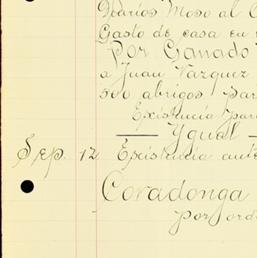 Diarios Moso al C
Gasto de casa en
Por Ganado
a Juan Vazquez
500 abrigos par
Existencia par
Ygual
Sep. 12 Existencia ante
Coradonga
por orde